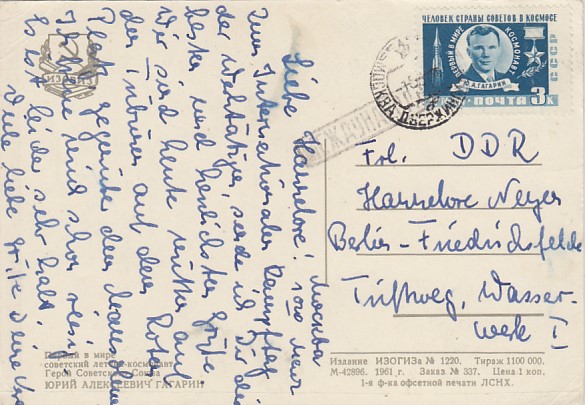 ЧЕЛОВЕК СТРАНЫ СОВЕТОВ В КОСМОСЕ
ПЕРВЫЙ В МИРЕ КОСМОНАВТ
Ю.А.ГАГАРИН
ПОЧТА 3К
МОСКВА
ИЗОГИЗ
Liebe Hannelore! Moskau
Zum Internationalen Kampftag
der Werktätigen, sende ich Dir die
besten und herzlichsten Grüße
Wir sind heute mitten auf
der Tribüne auf dem Roten
Platz gegenüber dem Mausoleum
Es ist leider sehr kalt.
Viele liebe Grüße Deine
Frl. DDR
Hannelore Neyer
Berlin-Friedrichsfelde
Triftweg, Wasser-
werk I
Первый в мире
советский летчик-космонавт
Герой Советского Союза
ЮРИЙ АЛЕКСЕЕВИЧ ГАГАРИН
Издание ИЗОГИЗа № 1220. Тираж 1100 000.
М-42896. 1961 г. Заказ № 337. Цена 1 коп.
1-я ф-ка офсетной печати ЛСНХ.